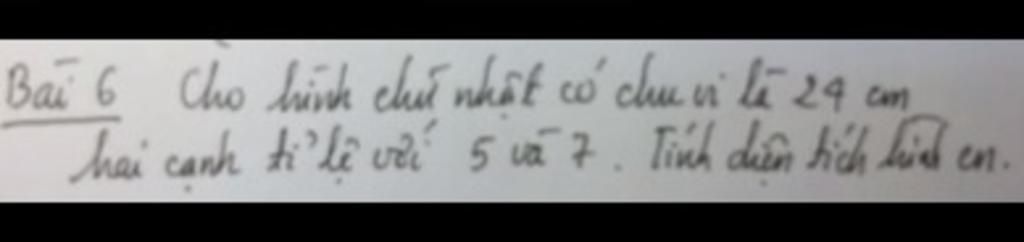 Bài 6 Cho hình chữ nhật có chu vi là 24 cm
hai cạnh tỉ lệ với 5 và 7. Tính diện tích hình cn.